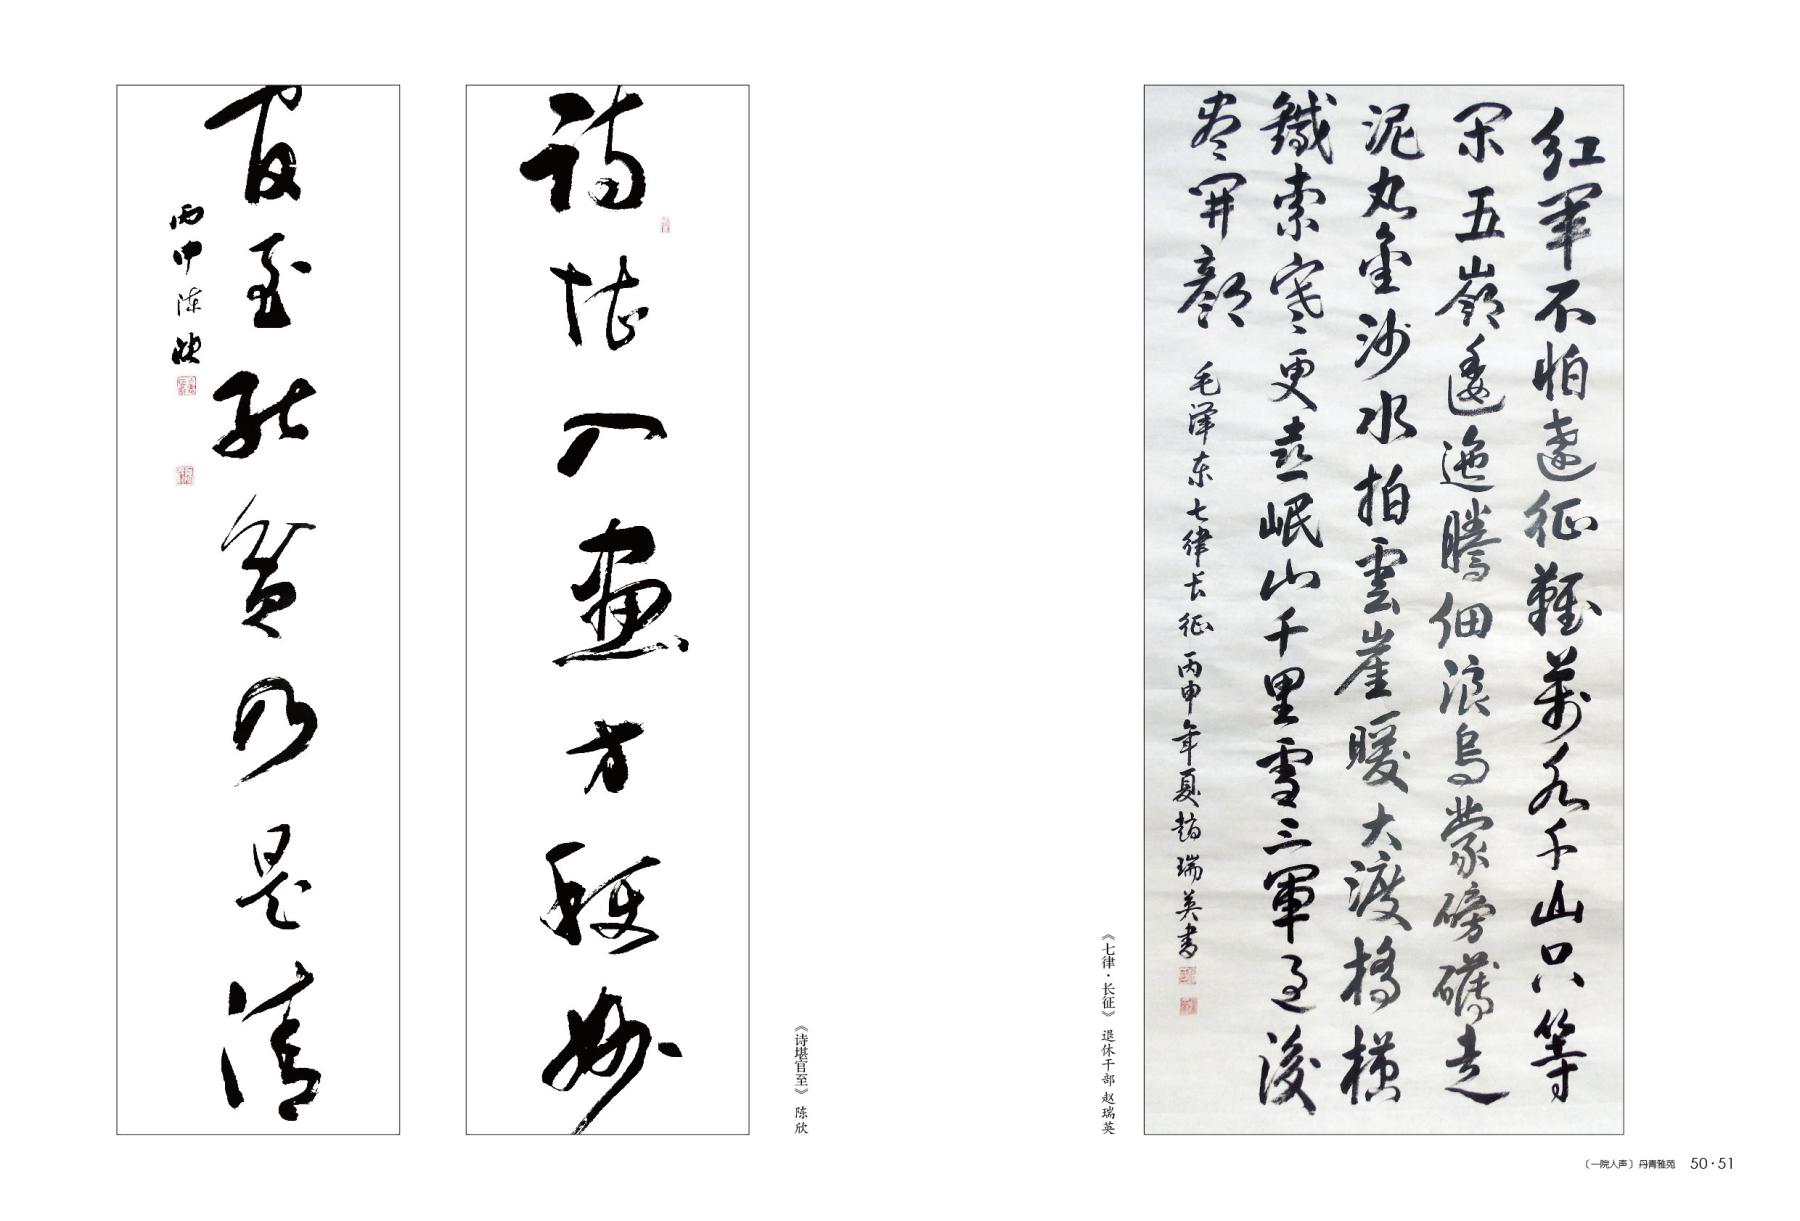 红軍不怕遠征難萬水千山只等
闲五嶺逶迤騰细浪烏蒙磅礴走
泥丸金沙水拍雲崖暖大渡橋横
鐵索寒更喜岷山千里雪三軍过後
尽開顔
毛泽东七律长征 丙申年夏趙瑞英書
《七律·长征》 退休干部 赵瑞英
诗堪入画方称妙
官至能贫乃是清
丙申陈欣
《诗堪官至》 陈欣
〔一院人声〕丹青雅苑 50·51